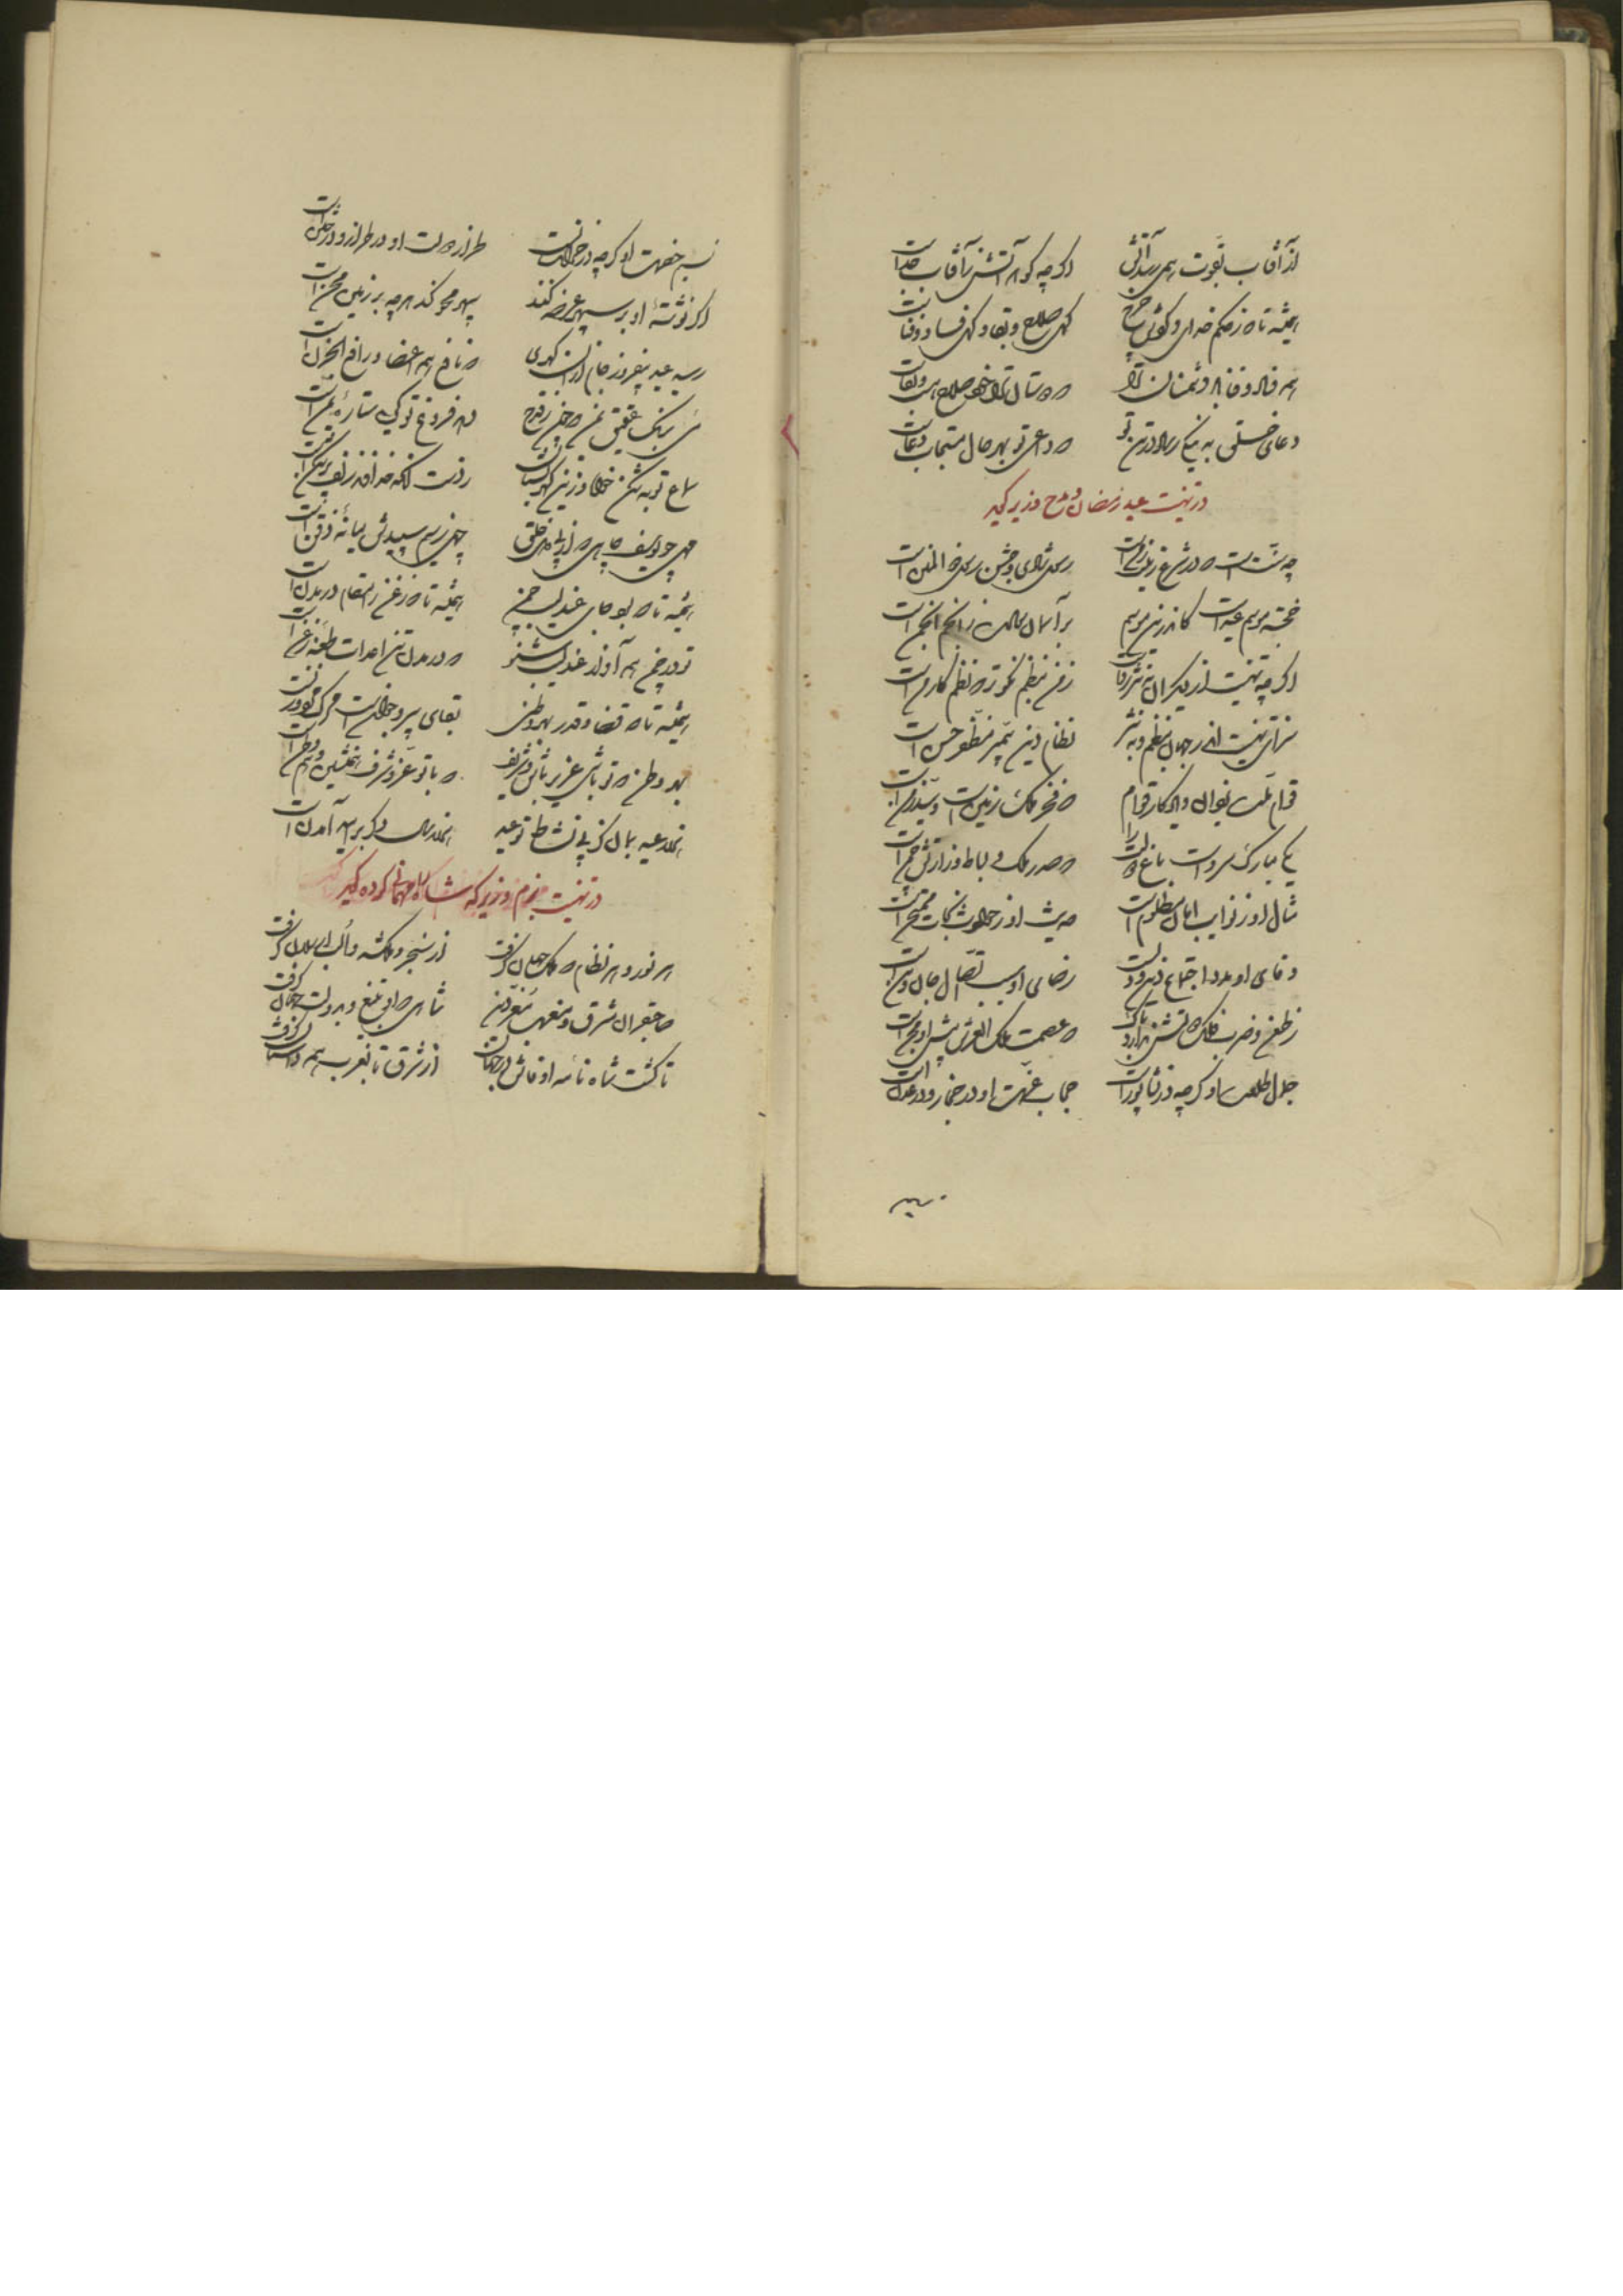 از آفتاب بقوت همی رسد آتش اگر چه گوهر آتش ز آفتاب جداست
همیشه تا که ز حکم خدای و گردش چرخ گهی صلاح و بقا و گهی فساد و فناست
همه فساد و فنا باد دشمنان ترا که دوستان ترا خود صلاح هست و بقاست
دعای خلق به نیکی رساد در تن تو که داعی تو بهر حال مستجاب دعاست
در تهنیت عید رمضان و مدح وزیر گوید
چه سنت است که در شرع زینت زمن است رسول شادی و جشن رسول ذو المنن است
خجسته موسم عید است کاندرین موسم بر آسمان رسالت ز انجم انجمن است
اگر چه تهنیت از دیگران به نثر رواست ز من بنظم نکوتر که نظم کار من است
سزای تهنیت اندر جهان بنظم و به نثر نظام دین پیمبر مظفر حسن است
قوام ملت یزدان و یادگار قوام که فخر ملک زمین است و سید زمن است
یکی مبارک سرو است باغ دولت را که صدر ملک و بساط وزارتش چمن است
مثال او ز نوایب امان مظلوم است حدیث او ز حوادث نجات ممتحن است
وفای او مدد اجتماع دین و دل است رضای او سبب اتصال جان و تن است
ز طعن و ضرب فلک دشمنش ندارد باک که عصمت ملک العرش پیش او مجن است
جمال طلعت او گر چه در نشابور است حجاب غیبت او در خمار و در عدن است
نسیم خصلت او گر چه در خراسان است طراز دولت او در طراز و در ختن است
اگر نوشتهٔ او بر سپهر عرضه کنند سپهر محو کند هر چه بر زمین محن است
رسید عید بیفروز جام از آن گهری که نافع همه اعضا و رافع الحزن است
می برنگ عقیق یمن که چون ز قدح دهد فروغ تو گویی ستارهٔ یمن است
سماع توبه شکن خواه و زینهار
مهی چو یوسف چاهی که از پی دل خلق چهی ز سیم سپیدش میانهٔ ذقن است
همیشه تا که بود جای عندلیب چمن همیشه تا که زغن را مقام در دمن است
تو در چمن همه آواز عندلیب شنو که در دمن تن اعدات طعمهٔ زغن است
همیشه تا که قضا و قدر بهر وطنی بقای پیر و جوان است و مرگ مرد و زن است
بهر وطن که تو باشی عزیز باش و شریف که با تو عز و شرف همنشین و هم وطن است
هزار عید بمان کز پی نشاط تو عید هزار سال دگر بر سر آمدن است
در تهنیت بزم وزیر که شاه را مهمانی کرده گوید
هر نور و هر نظام که ملک جهان گرفت از سنجر و ملکشه و الب ارسلان گرفت
صاحبقران مشرق و مغرب معز دین شاهی که او بتیغ و بدولت جهان گرفت
تا گشت شاه نامه او فاش در جهان از شرق تا بغرب همه داستان گرفت